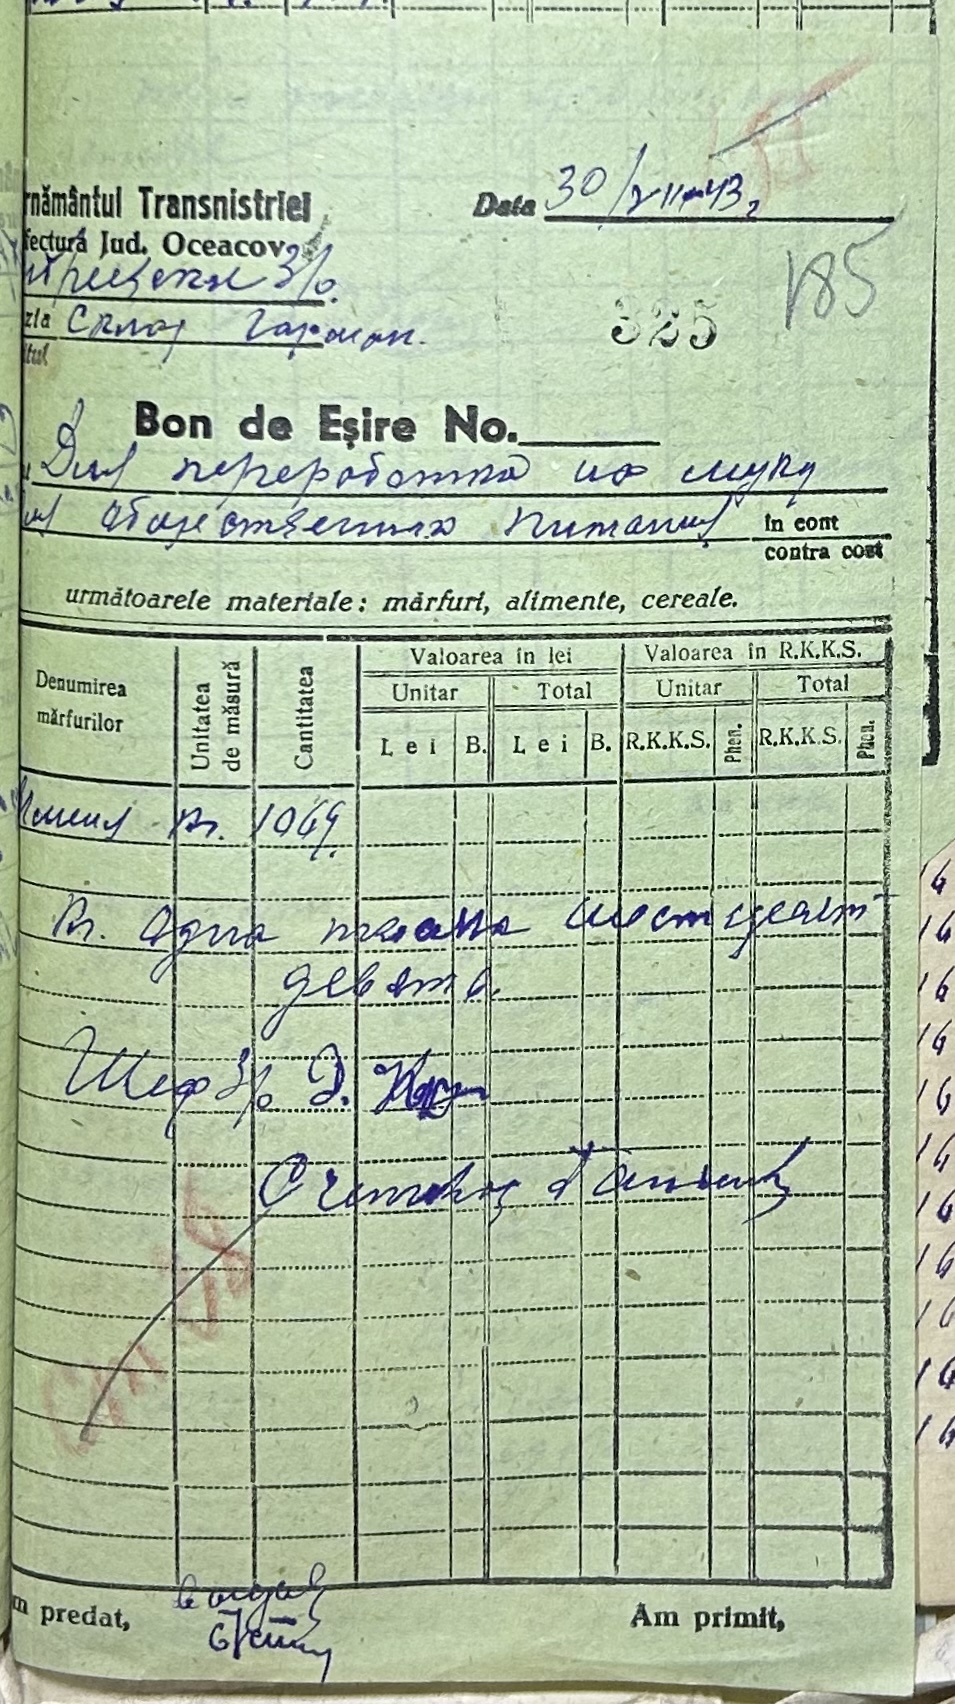 rnământul Transnistriei
Data 30/VII-43
fectură Jud. Oceacov
З/о.
zia Склад Гармон.
itul
325
185
Bon de Eşire No.
Для переработки на муку
общественного питания în cont
contra cost
următoarele materiale: mărfuri, alimente, cereale.
Denumirea mărfurilor
Unitatea de măsură
Cantitatea
Valoarea în lei
Valoarea în R.K.K.S.
Unitar
Total
Unitar
Total
Lei
B.
Lei
B.
R.K.K.S.
Phen.
R.K.K.S.
Phen.
Кг. 1069.
Кг. одна тысяча шестдесят
девять.
Шеф З/о Д.
Счетовод
m predat,
Am primit,